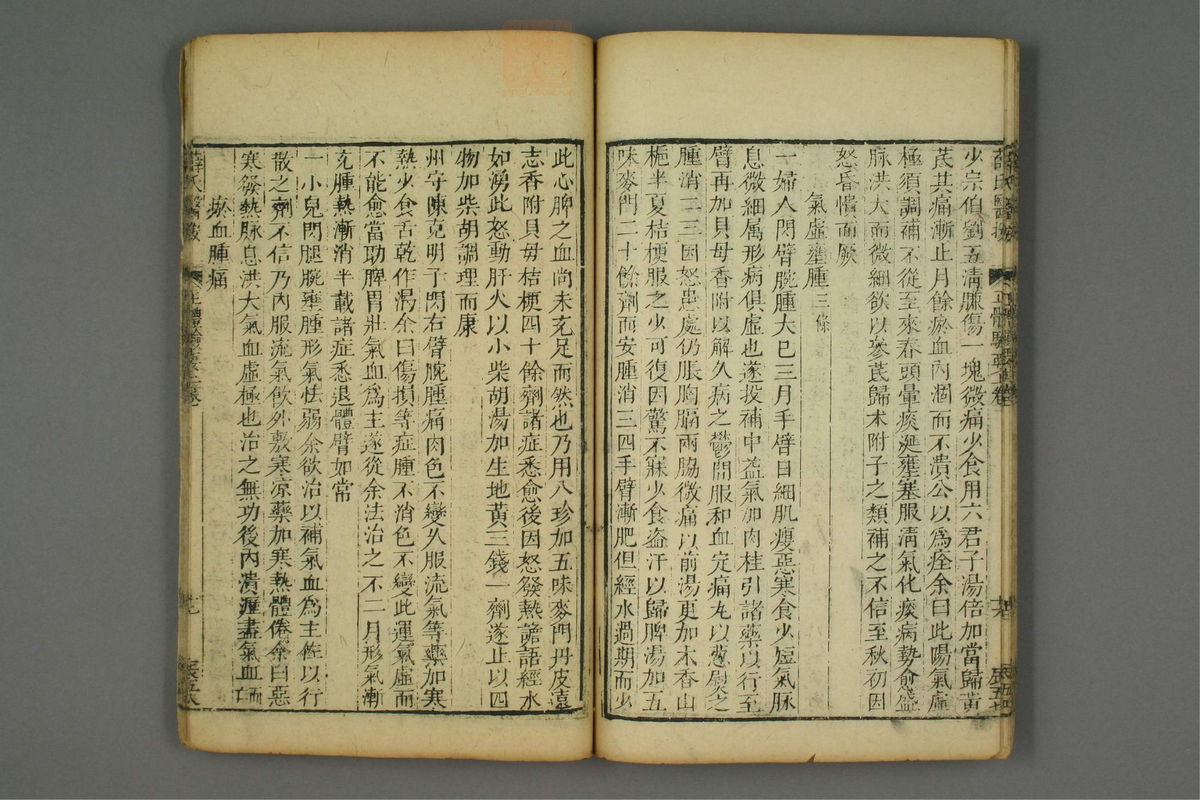 少宗伯劉五清臁傷一塊微痛少食用六君子湯倍加當歸黃
芪其痛漸止月餘瘀血內涸而不潰公以為痊余曰此陽氣虛
極須調補不從至來春頭暈痰涎壅塞服清氣化痰病勢愈盛
脉洪大而微細欲以參芪歸术附子之類補之不信至秋初因
怒昏憒而厥
氣虛壅腫三條
一婦人閃臂腕腫大已三月手臂日細肌瘦惡寒食少短氣脉
息微細属形病俱虛也遂投補中益氣加肉桂引諸藥以行至
臂再加貝母香附以解久病之鬱間服和血定痛丸以葱熨之
腫消二三因怒患處仍脹胸膈兩脇微痛以前湯更加木香山
梔半夏桔梗服之少可復因驚不寐少食盗汗以歸脾湯加五
味麥門二十餘劑而安腫消三四手臂漸肥但經水過期而少
此心脾之血尚未充足而然也乃用八珍加五味麥門丹皮遠
志香附貝母桔梗四十餘劑諸症悉愈後因怒發熱譫語經水
如湧此怒動肝火以小柴胡湯加生地黃三錢一劑遂止以四
物加柴胡調理而康
州守陳克明子閃右臂腕腫痛肉色不變久服流氣等藥加寒
熱少食舌乾作渴余曰傷損等症腫不消色不變此運氣虛而
不能愈當助脾胃壯氣血為主遂從余法治之不二月形氣漸
充腫熱漸消半載諸症悉退體臂如常
一小兒閃腿腕壅腫形氣怯弱余欲治以補氣血為主佐以行
散之劑不信乃內服流氣飲外敷寒凉藥加寒熱體倦余曰惡
寒發熱脉息洪大氣血虛極也治之無功後內潰瀝盡氣血而
瘀血腫痛